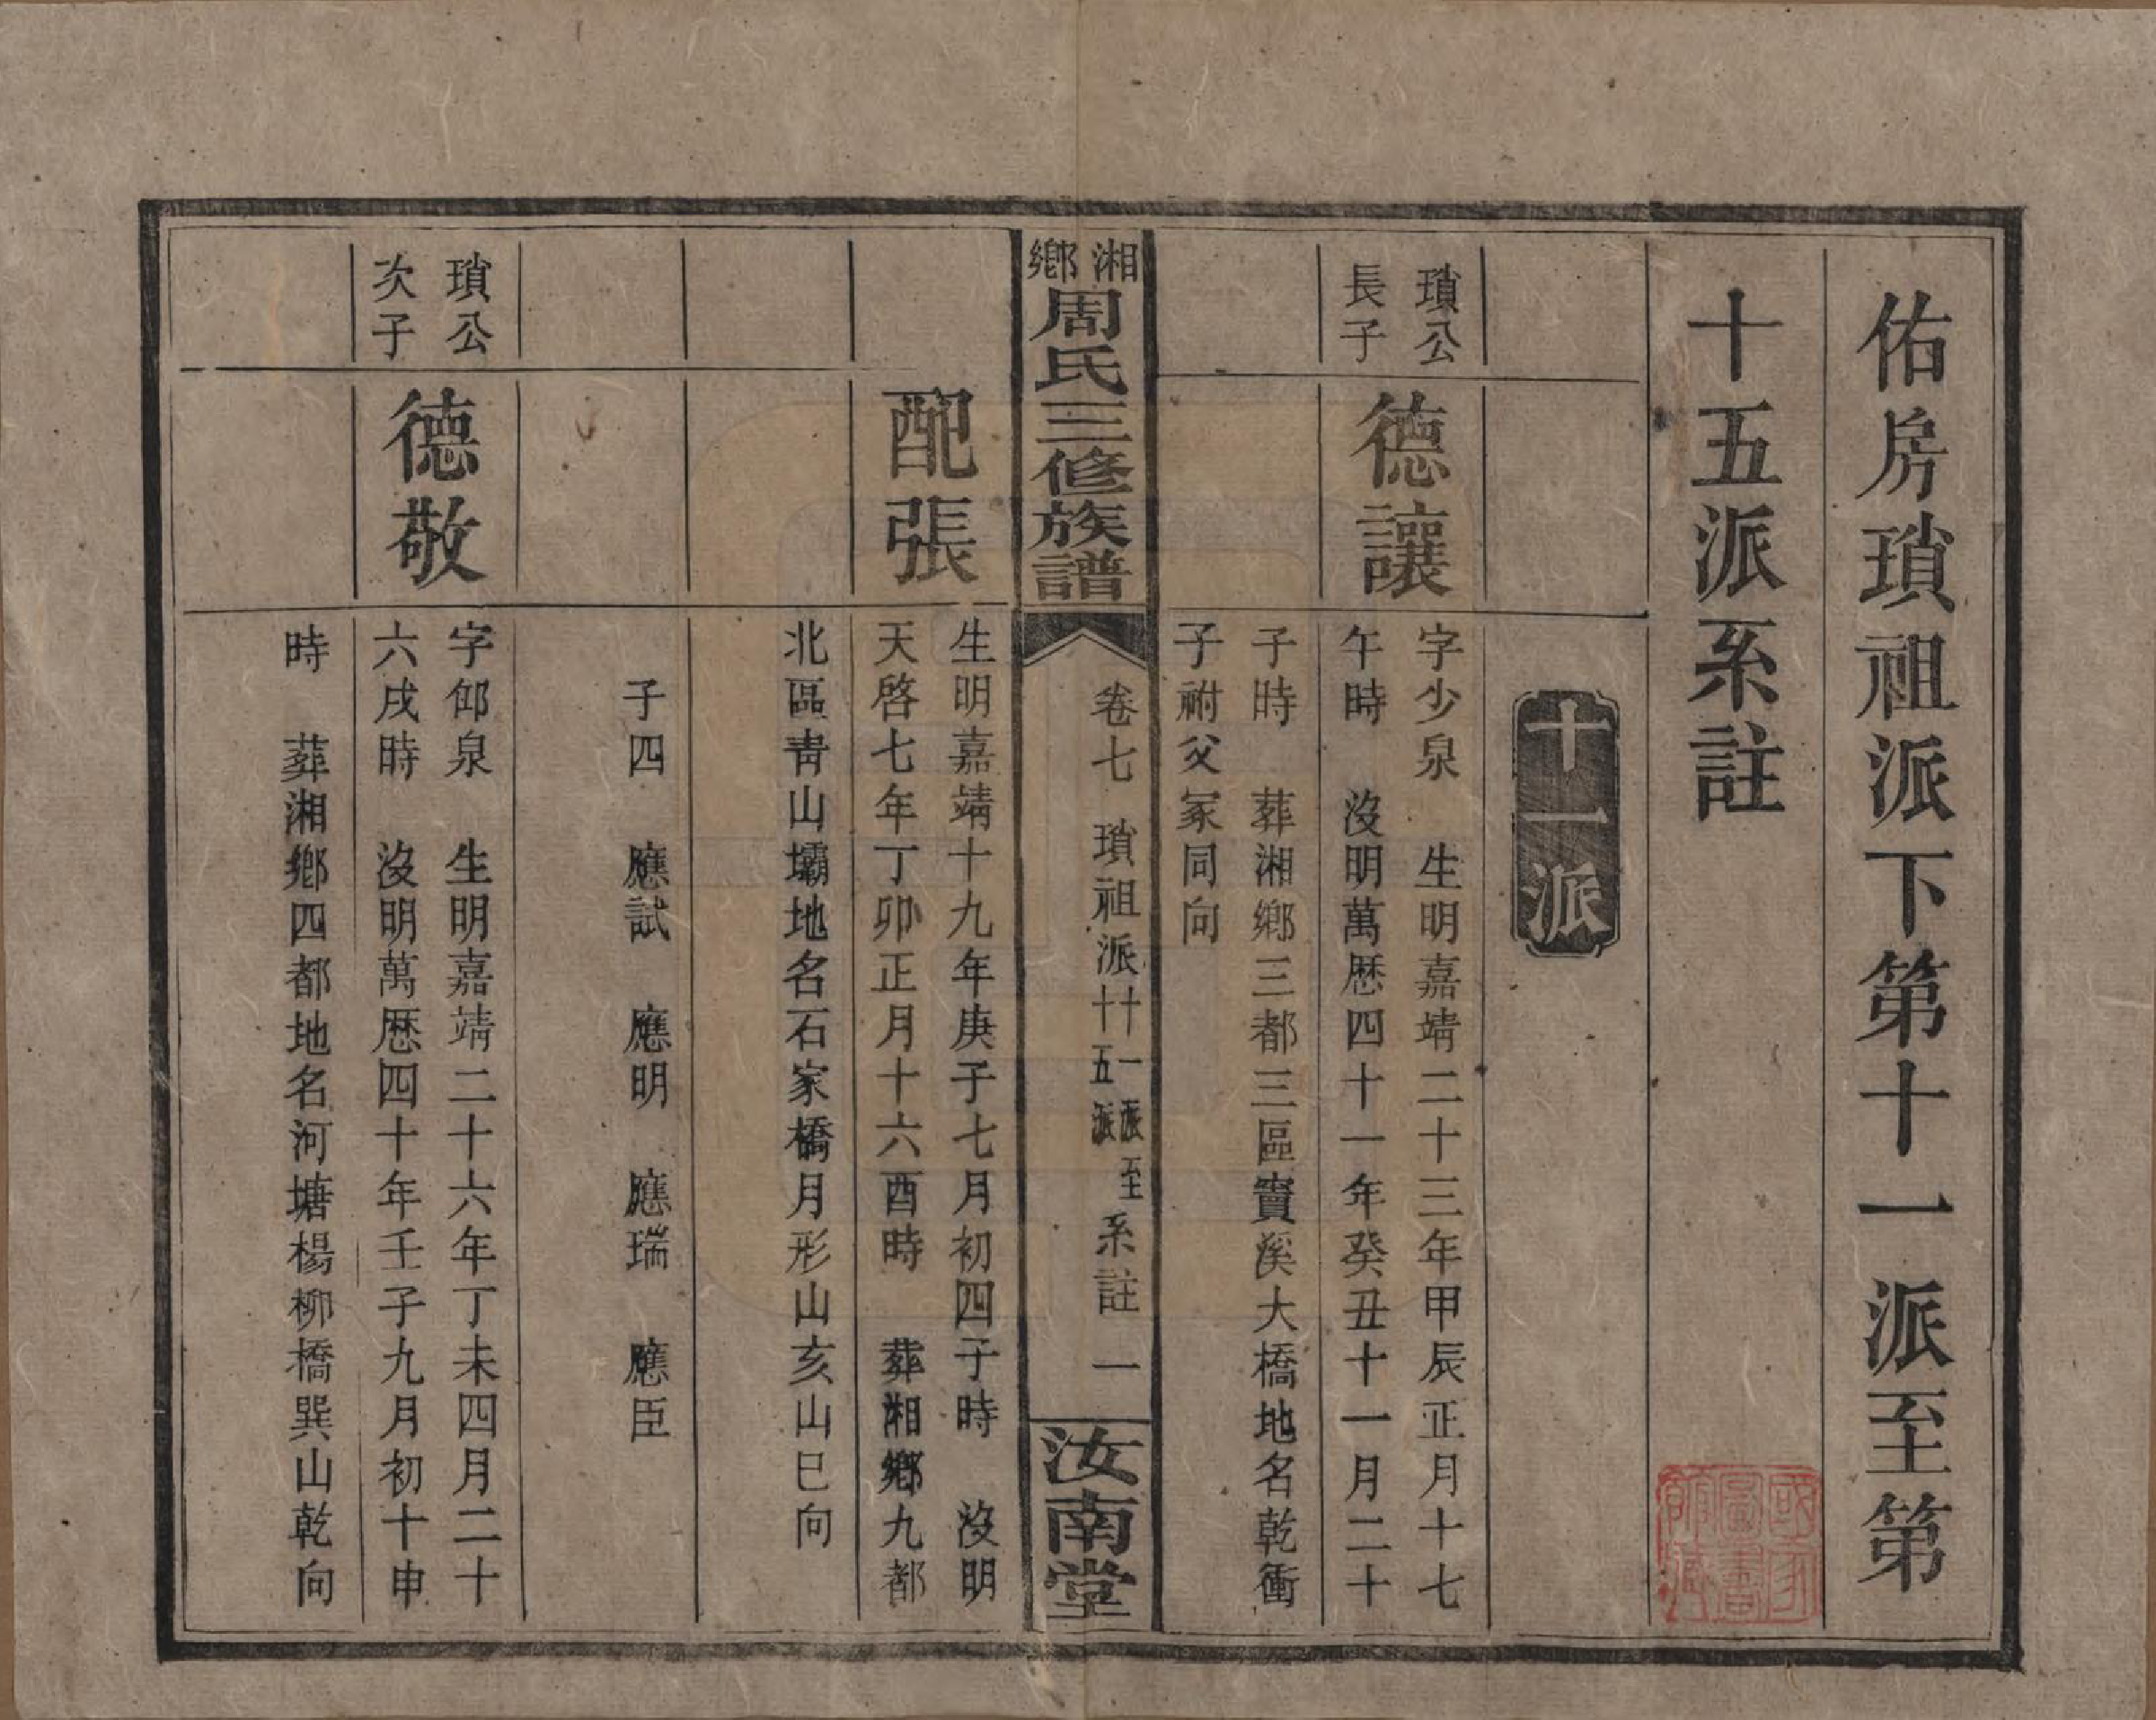 佑房瑣祖派下第十一派至第
十五派系註
國家圖書館藏
十一派
瑣公
長子
德讓
字少泉　生明嘉靖二十三年甲辰正月十七
午時　沒明萬歷四十一年癸丑十一月二十
子時　葬湘鄉三都三區竇溪大橋地名乾衝
子祔父冢同向
湘鄉
周氏三修族譜
卷七　瑣祖派十一派至十五派系註　一
汝南堂
配張
生明嘉靖十九年庚子七月初四子時　沒明
天啓七年丁卯正月十六酉時　葬湘鄉九都
北區靑山壩地名石家橋月形山亥山巳向
子四　應試　應明　應瑞　應臣
瑣公
次子
德敬
字仰泉　生明嘉靖二十六年丁未四月二十
六戌時　沒明萬歷四十年壬子九月初十申
時　葬湘鄉四都地名河塘楊柳橋巽山乾向